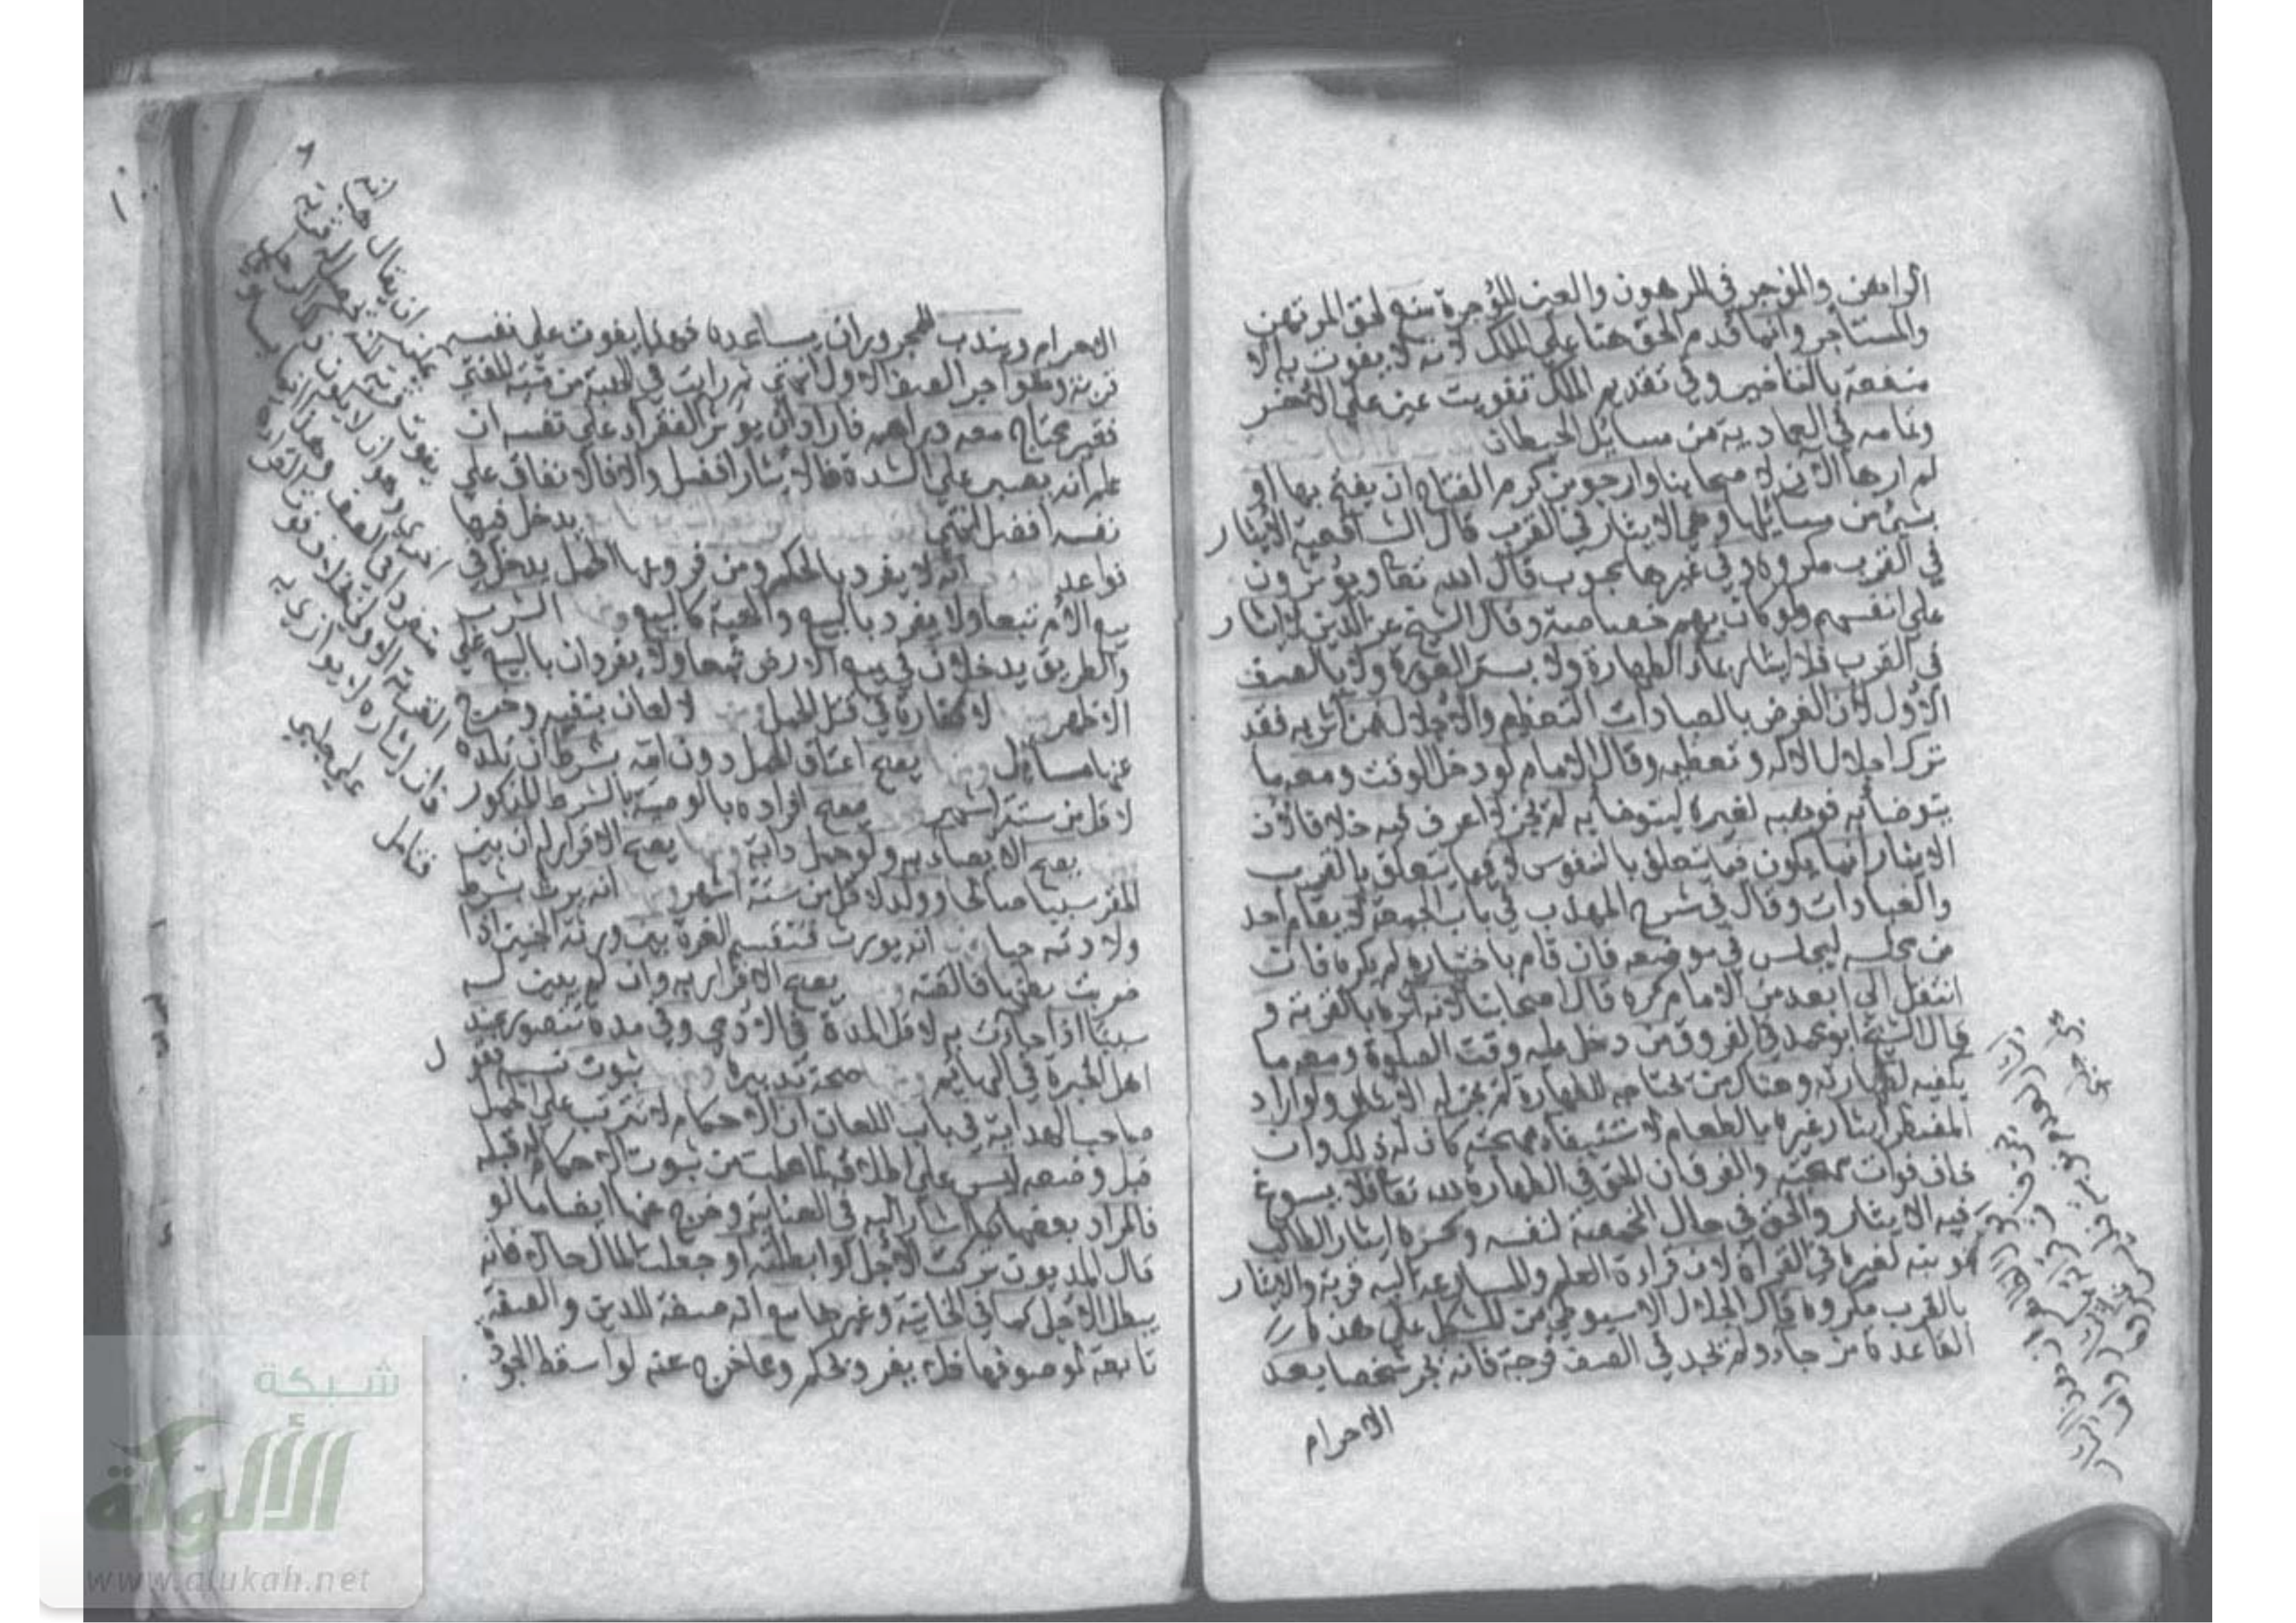 الراهن والموجر في المرهون والعين المؤجرة منع لحق المرتهن
والمستاجر وانما قدم الحق هنا على الملك لانه لا يفوت به الا
منفعة بالتاخير وفي تقديم الملك تفويت عين على الاخر
وتمامه في العمادية من مسائل الحيطان
لم ارها الآن لاصحابنا وارجو من كرم الفتاح ان يفتح بها او
بشئ من مسائلها وهي الايثار في القرب قال الشافعية الايثار
في القرب مكروه وفي غيرها محبوب قال الله تعا ويؤثرون
على انفسهم ولو كان بهم خصاصة وقال الشيخ عز الدين لا ايثار
في القرب فلا ايثار بماء الطهارة ولا بستر العورة ولا بالصف
الاول لان الغرض بالعبادات التعظيم والاجلال فمن آثر به فقد
ترك اجلال الاله وتعظيمه وقال الامام لو دخل الوقت ومعه ما
يتوضأ به فوهبه لغيره ليتوضأ به لم يجز لا اعرف فيه خلافا لان
الايثار انما يكون فيما يتعلق بالنفوس لا فيما يتعلق بالقرب
والعبادات وقال في شرح المهذب في باب الجمعة لا يقام احد
من مجلسه ليجلس في موضعه فان قام باختياره لم يكره فان
انتقل الى ابعد من الامام كره قال اصحابنا لانه آثره بالقربة و
قال الشيخ ابو محمد في الفروق من دخل عليه وقت الصلوة ومعه ما
يكفيه لطهارته وهناك من يحتاجه للطهارة لم يجز له الايثار ولو اراد
المضطر ايثار غيره بالطعام لاستبقاء مهجته كان له ذلك وان
خاف فوات مهجته والفرق ان الحق في الطهارة لله تعا فلا يسوغ
فيه الايثار والحق في حال المخمصة لنفسه وكره ايثار الطالب
نوبته لغيره في القرآة لان قراءة العلم والمسارعة اليه قربة والايثار
بالقرب مكروه قال الجلال الاسيوطي من المشكل على هذه
القاعدة من جاء ولم يجد في الصف فرجة فانه يجر شخصا بعد
الاحرام
الاحرام ويندب للمجرور ان يساعده فهذا يفوت على نفسه
قربة وهو اجر الصف الاول انتهى ثم رايت في الهبة من منية المفتي
فقير محتاج معه دراهم فاراد ان يوثر الفقراء على نفسه ان
علم انه يصبر على الشدة فالايثار افضل والا فالانفاق على
نفسه افضل انتهى يدخل فيها
قواعد انه لا يفرد بالحكم ومن فروعها الحمل يدخل في
بيع الام تبعا ولا يفرد بالبيع والهبة كالبيع الشرب
والطريق يدخلان في بيع الارض تبعا ولا يفردان بالبيع على
الاظهر لا كفارة في قتل الحمل لا لعان بنفيه وخرج
عنها مسائل يصح اعتاق الحمل دون امه بشرط ان تلده
لاقل من ستة اشهر يصح افراده بالوصية بالشرط المذكور
يصح الايصاء به ولو حمل دابة يصح الاقرار له ان بين
المقر سببا صالحا وولد لاقل من ستة اشهر انه يرث بشرط
ولادته حيا انه يورث فتقسم الغرة بين ورثة الجنين اذا
ضربت بطنها فالقته يصح الاقرار به وان لم يبين له
سببا اذا جاءت به لاقل المدة في الآدمي وفي مدة تتصور عند
اهل الخبرة في البهائم صحة تدبيره ثبوت نسبه فقول
صاحب الهداية في باب اللعان ان الاحكام لا تترتب على الحمل
قبل وضعه ليس على اطلاقه لما علمت من ثبوت الاحكام له قبله
فالمراد بعضها كما اشار اليه في العناية وخرج عنها ايضا ما لو
قال المديون تركت الاجل او ابطلته او جعلت المال حالا فانه
يبطل الاجل كما في الخانية وغيرها مع انه صفة للدين والصفة
تابعة لموصوفها فلا يفرد بحكم ومما خرج عنه لو اسقط الجودة
ان يقال
يفوت
اخرى وهو ان لا يقف
منفردا في الصف
القربة الاولى
فان ايثاره لا يوازي به
فتامل
علي حلبي
شبكة
الألوكة
www.alukah.net